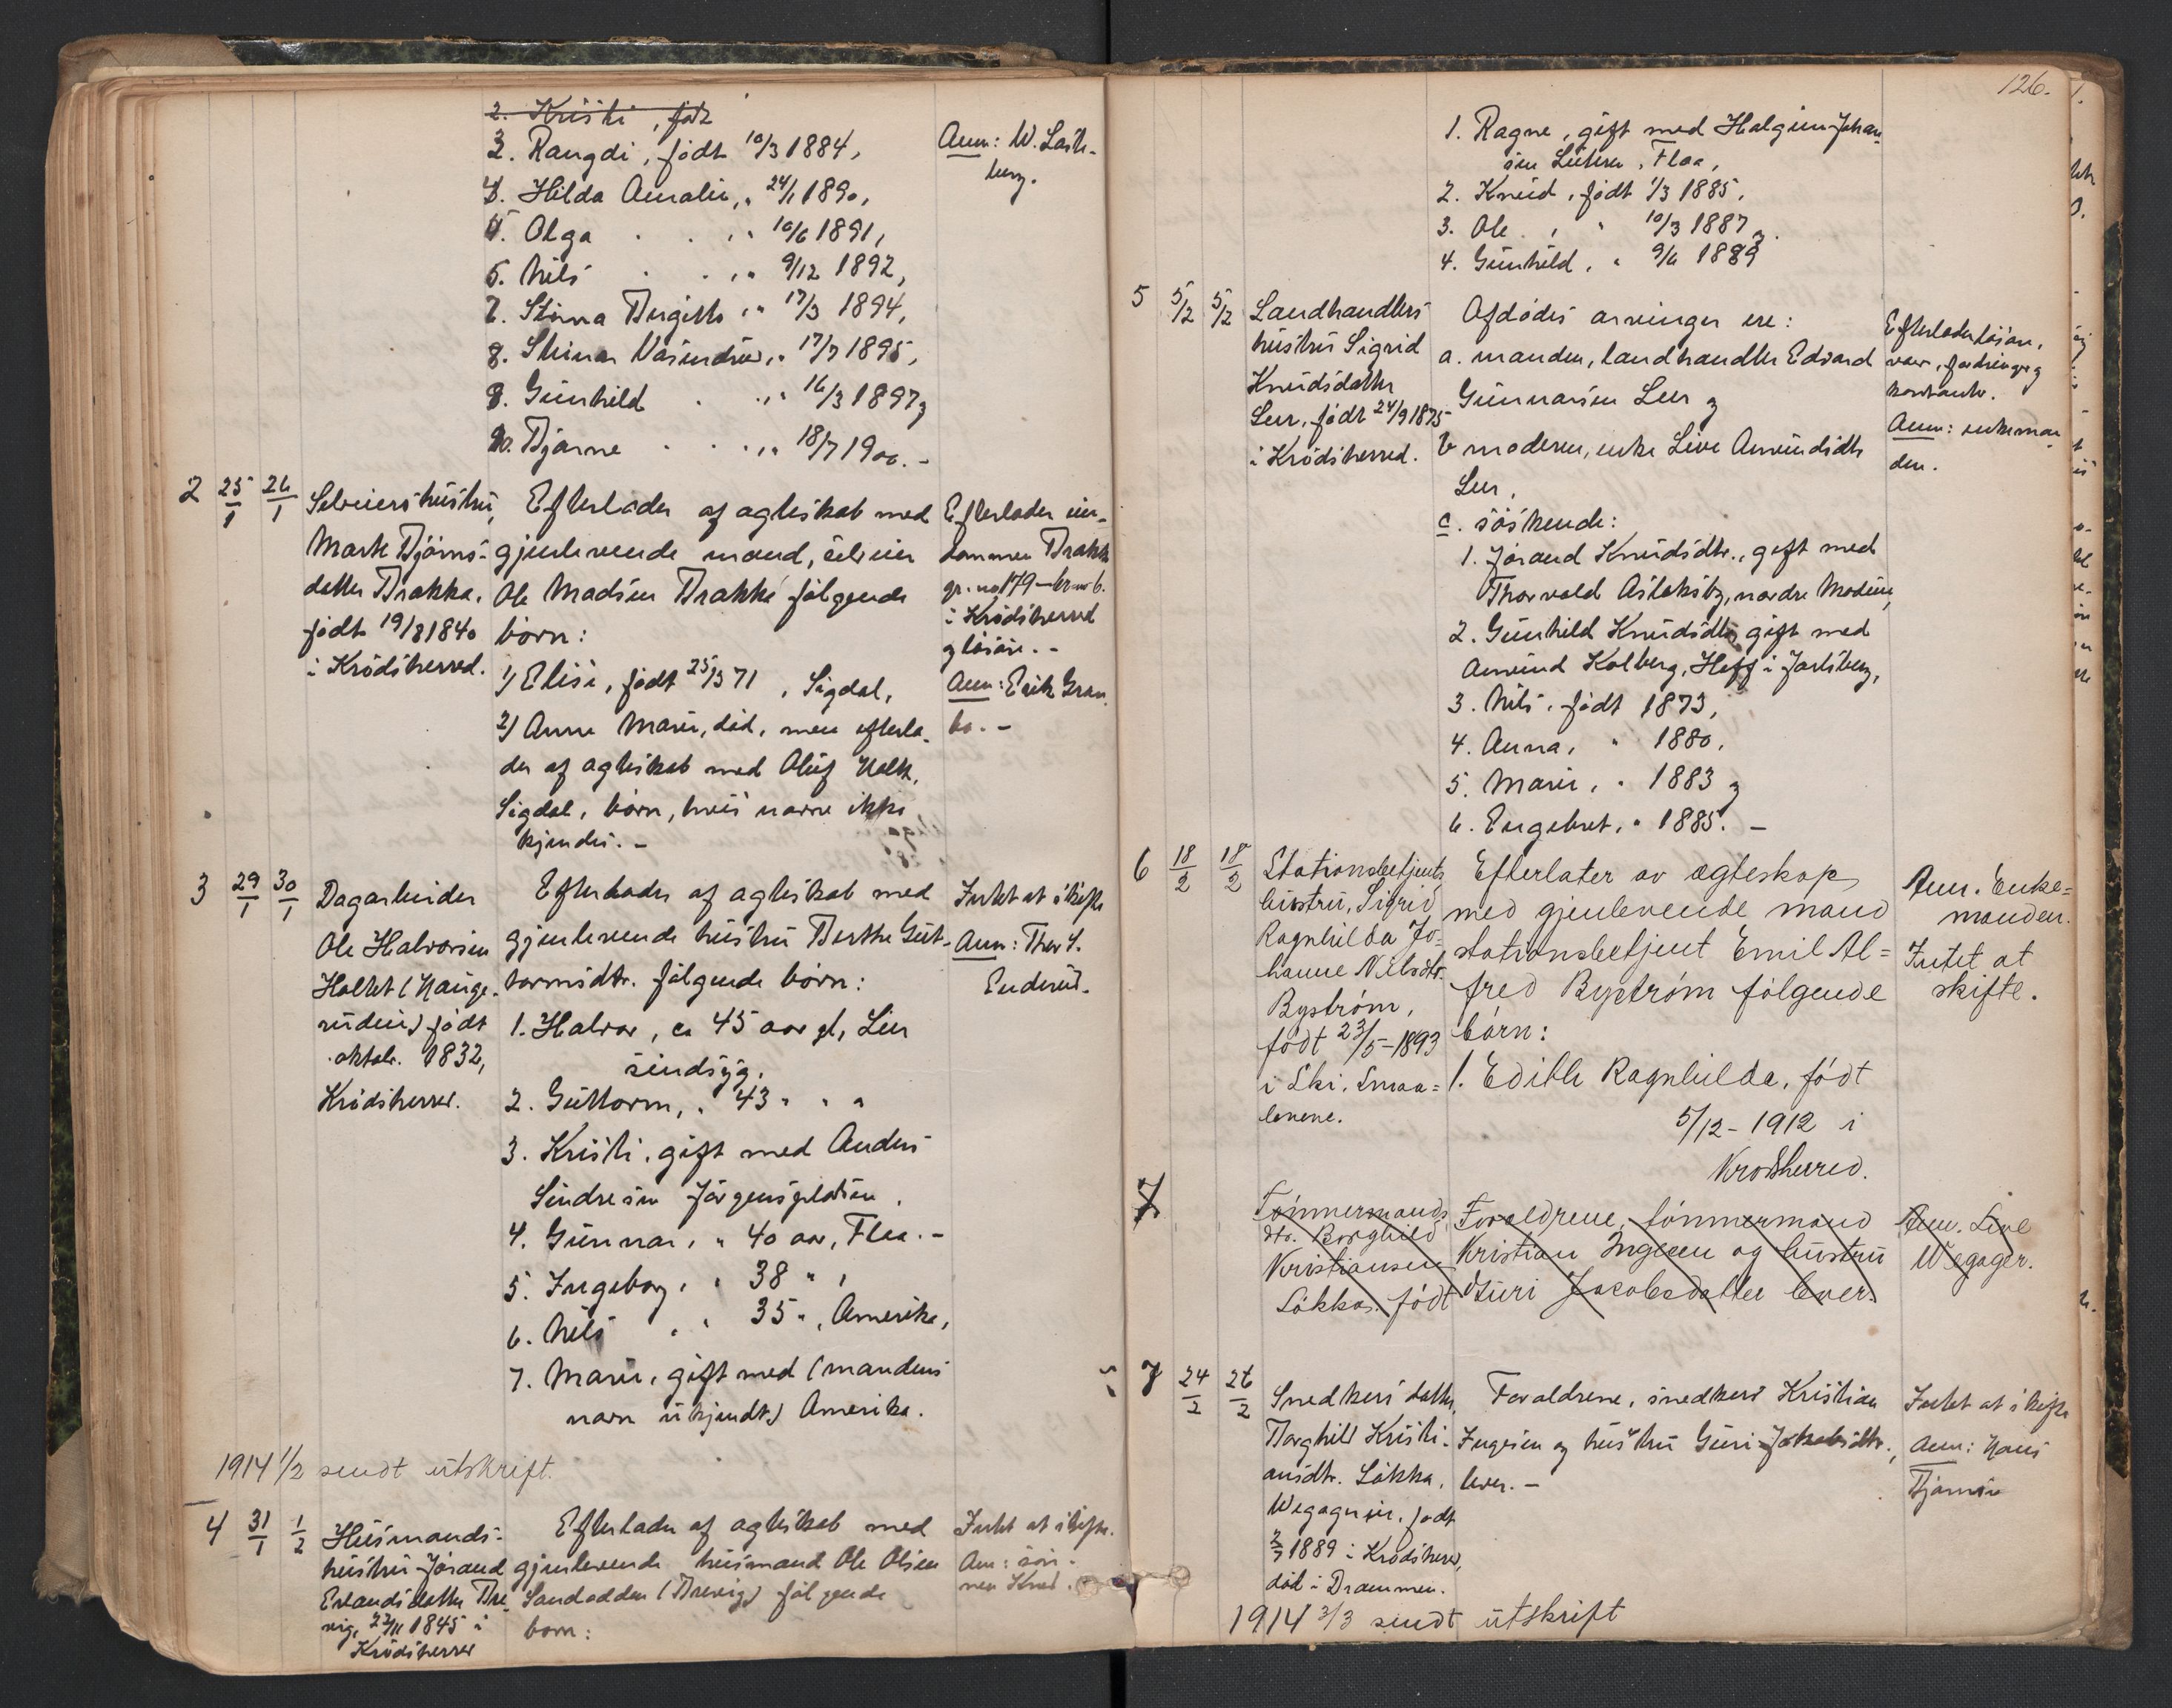 2. Kristi, født
3. Rangdi, født 10/3 1884,
4. Hilda Amalie, " 24/1 1890,
5. Olga " 10/6 1891,
6. Nils " 9/12 1892,
7. Stinna Birgitte " 17/3 1894,
8. " 17/7 1895,
9. Gunhild " 16/3 1897 og
10. Bjarne " 18/7 1900. -
Anm: W. Laste-
berg.
2 25/1 26/1
Selveiershustru,
Marte Bjørns-
datter Brakka,
født 19/8 1840
i Krødsherred.
Efterlader af egteskab med
gjenlevende mand, selveier
Ole Madsen Brakka følgende
børn:
1) Elise, født 25/3 71, Sigdal,
2) Anne Marie, død, men efterla-
der af egteskab med Oluf
Sigdal, børn, hvis navne ikke
kjendes. -
Efterlader eien-
dommen Brakka
gr. no 179 - br. no 6.
i Krødsherred
og løsøre. -
Anm: Erik Gran
bo. -
3 29/1 30/1
Dagarbeider
Ole Halvorsen
Holtet (Hauge-
rudeie) født
oktobr. 1832,
Krødsherred.
Efterlader af egteskab med
gjenlevende hustru Berthe Gut-
tormsdtr. følgende børn:
1. Halvor, ca 45 aar gl, Lier
sindsyg.
2. Guttorm, " 43 " " "
3. Kristi, gift med Anders
Sindresen
4. Gunnar, " 40 aar, Flaa. -
5. Ingeborg, " 38 " ,
6. Nils " " 35 ", Amerika,
7. Marie, gift med (mandens
navn ukjendt) Amerika.
Intet at skifte
Anm: Thor S.
Enderud.
1914 1/2 sendt utskrift.
4 31/1 1/2
Husmands-
hustru Jørand
Erlandsdatter Bre-
vig, 22/11 1845 i
Krødsherred
Efterlader af egteskab med
gjenlevende husmand Ole Olsen
Sandodden (Brevig) følgende
børn:
Intet at skifte.
Anm: søn-
nen Knud.
126.
1. Ragne, gift med Halgrim Johan-
sen Flaa,
2. Knud, født 1/3 1885,
3. Ole, " 10/3 1887 og
4. Gunhild, " 9/6 1889
5 5/2 5/2
Landhandlers
hustru Sigrid
Knudsdatter
Leer, født 24/9 1875
i Krødsherred.
Afdødes arvinger ere:
a. manden, landhandler Edvard
Gunnarsen Leer og
b moderen, enke Live Amundsdtr
Leer,
c. søskende:
1. Jørand Knudsdtr., gift med
Thorvald Aslaksby, nordre Modum,
2. Gunhild Knudsdtr, gift med
Amund Kolberg, Hoff i Jarlsberg,
3. Nils, født 1873,
4. Anna, " 1880,
5. Marie, " 1883 og
6. Engebret, " 1885. -
Efterlader løsøre,
varer, fordringer og
kontanter.
Anm: enkeman
den.
6 18/2 18/2
Stationsbetjents
hustru, Sigrid
Ragnhilda Jo-
hanne Nilsdtr.
Byström,
født 23/5-1893
i Ski, Smaa=
lenene.
Efterlater av ægteskap
med gjenlevende mand
stationsbetjent Emil Al=
fred Byström følgende
børn:
1. Edith Ragnhilda, født
5/12 - 1912 i
Krødsherred.
Anm. Enke=
manden.
Intet at
skifte.
7
Tømmermands
dtr. Borghild
Kristiansen
Løkka. født
Forældrene, tømmermand
Kristian Ingesen og hustru
Guri Jacobsdatter lever.
Anm. Live
Wegager.
7 24/2 26/2
Snedkers datter,
Borghild Kristi-
ansdtr. Løkka,
født
2/7 1889 i Krødsherred,
død i Drammen.
Forældrene, snedker Kristian
Ingesen og hustru Guri Jakobsdtr.,
lever. -
Intet at skifte
Anm: Hans
Bjørnsen
1914 3/3 sendt utskrift